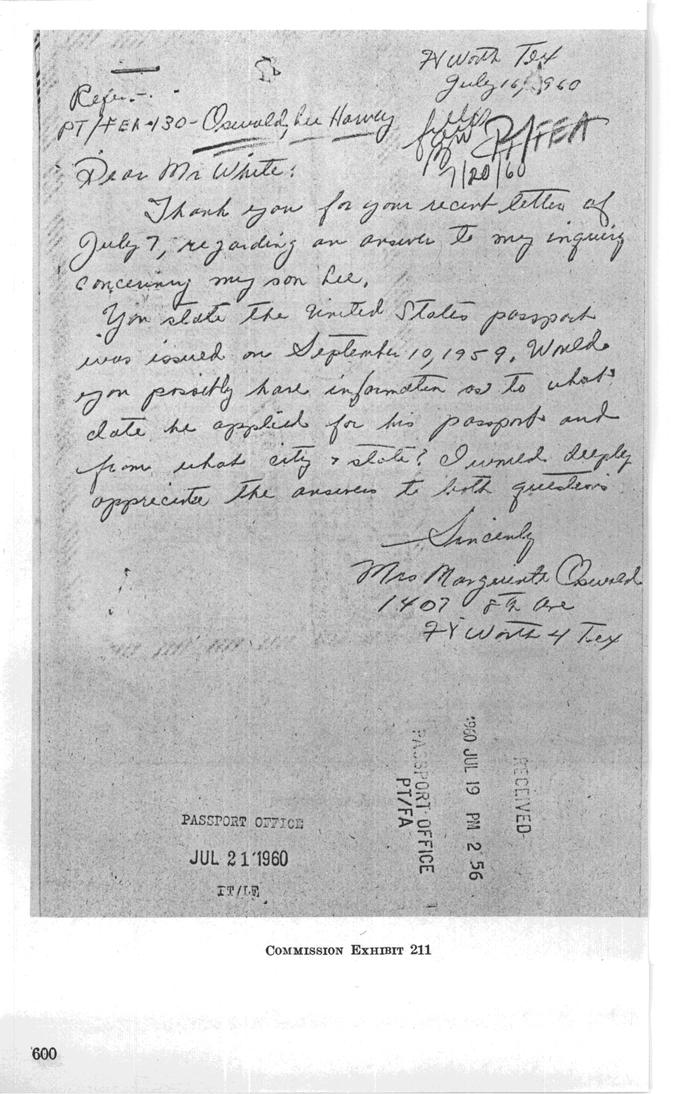 Ft Worth Tex
July 16, 1960
Refer. -
PT/FEA-130 - Oswald, Lee Harvey
PT/FEA
7/20/60
Dear Mr White:
Thank you for your recent letter of
July 7, regarding an answer to my inquiry
concerning my son Lee.
You state the United States passport
was issued on September 10, 1959. Would
you possibly have information as to what
date he applied for his passport and
from what city & state? I would deeply
appreciate the answers to both questions
Sincerely
Mrs Marguerite Oswald
1407 8th Ave
Ft Worth 4 Tex
RECEIVED
1960 JUL 19 PM 2 56
PASSPORT OFFICE
PT/FA
PASSPORT OFFICE
JUL 21 1960
COMMISSION EXHIBIT 211
600